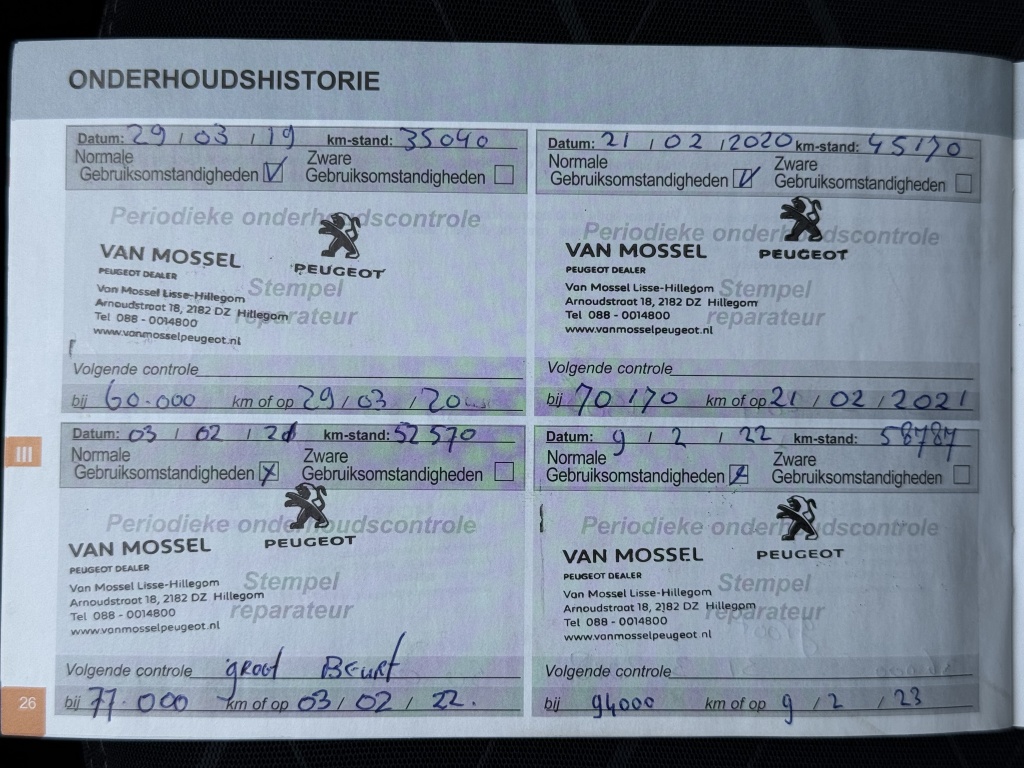 ONDERHOUDSHISTORIE
Datum: 29 / 03 / 19 km-stand: 35040
Normale Gebruiksomstandigheden V Zware Gebruiksomstandigheden
Periodieke onderhoudscontrole
VAN MOSSEL
PEUGEOT DEALER
PEUGEOT
Van Mossel Lisse-Hillegom
Arnoudstraat 18, 2182 DZ Hillegom
Tel 088 - 0014800
www.vanmosselpeugeot.nl
Stempel
reparateur
Volgende controle
bij 60.000 km of op 29 / 03 / 20
Datum: 21 / 02 / 2020 km-stand: 45170
Normale Gebruiksomstandigheden V Zware Gebruiksomstandigheden
Periodieke onderhoudscontrole
VAN MOSSEL
PEUGEOT DEALER
PEUGEOT
Van Mossel Lisse-Hillegom
Arnoudstraat 18, 2182 DZ Hillegom
Tel 088 - 0014800
www.vanmosselpeugeot.nl
Stempel
reparateur
Volgende controle
bij 70170 km of op 21 / 02 / 2021
III
Datum: 03 / 02 / 21 km-stand: 52570
Normale Gebruiksomstandigheden X Zware Gebruiksomstandigheden
Periodieke onderhoudscontrole
VAN MOSSEL
PEUGEOT DEALER
PEUGEOT
Van Mossel Lisse-Hillegom
Arnoudstraat 18, 2182 DZ Hillegom
Tel 088 - 0014800
www.vanmosselpeugeot.nl
Stempel
reparateur
Volgende controle groot Beurt
bij 77.000 km of op 03 / 02 / 22.
Datum: 9 / 2 / 22 km-stand: 58787
Normale Gebruiksomstandigheden X Zware Gebruiksomstandigheden
Periodieke onderhoudscontrole
VAN MOSSEL
PEUGEOT DEALER
PEUGEOT
Van Mossel Lisse-Hillegom
Arnoudstraat 18, 2182 DZ Hillegom
Tel 088 - 0014800
www.vanmosselpeugeot.nl
Stempel
reparateur
Volgende controle
bij 94000 km of op 9 / 2 / 23
26